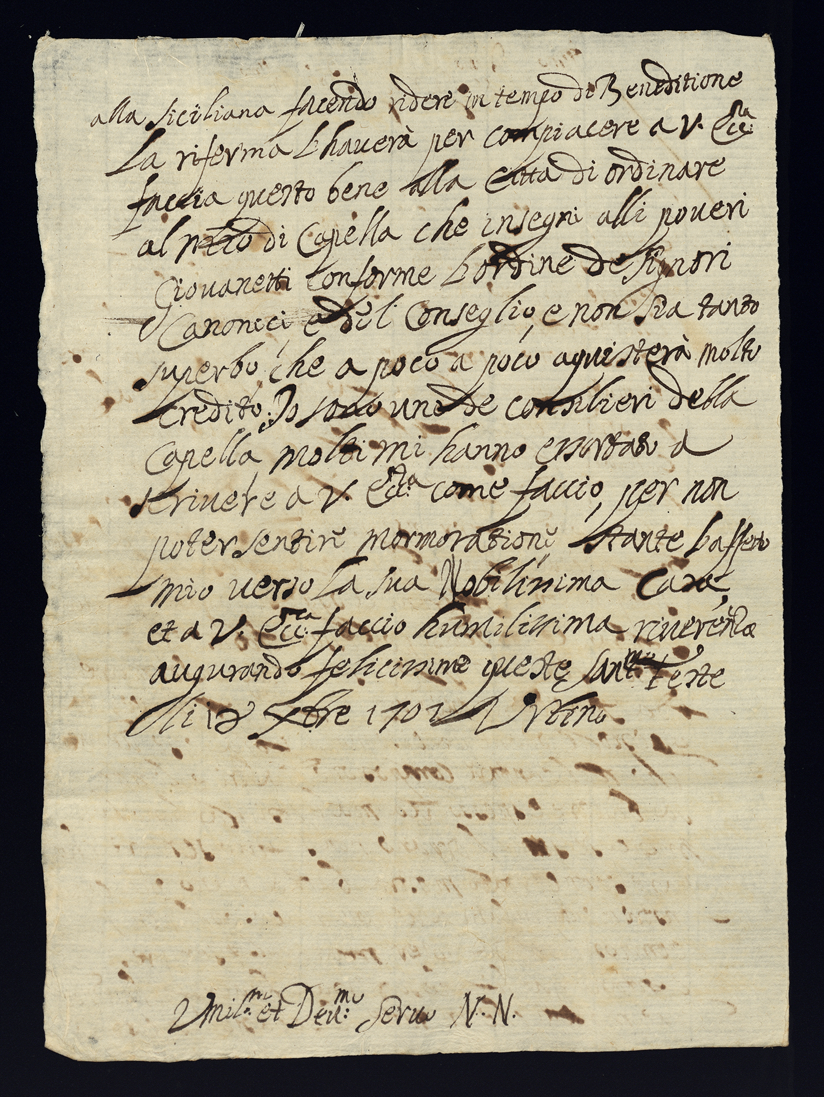 alla siciliana facendo ridere in tempo di Beneditione
La riferma L'hauerà per compiacere a V. Ecc.za
faccia questo bene alla Città di ordinare
al mtro di Capella che insegni alli poueri
Giouanetti conforme L'ordine de Signori
Canonici e del Conseglio, e non sia tanto
superbo che a poco a poco aquisterà molto
credito, Io sono uno de consilieri della
Capella molti mi hanno essortato a
scriuere a V. Ecc.za come faccio, per non
poter sentire mormoratione, stante L'affetto
mio verso La sua Nobilissima Casa,
et a V. Ecc.za faccio humilissima riuerenza
augurando felicissime queste Sant.me feste
li Xbre 1701 Urbino
Umil.mo et Deu.mo Seruo N. N.